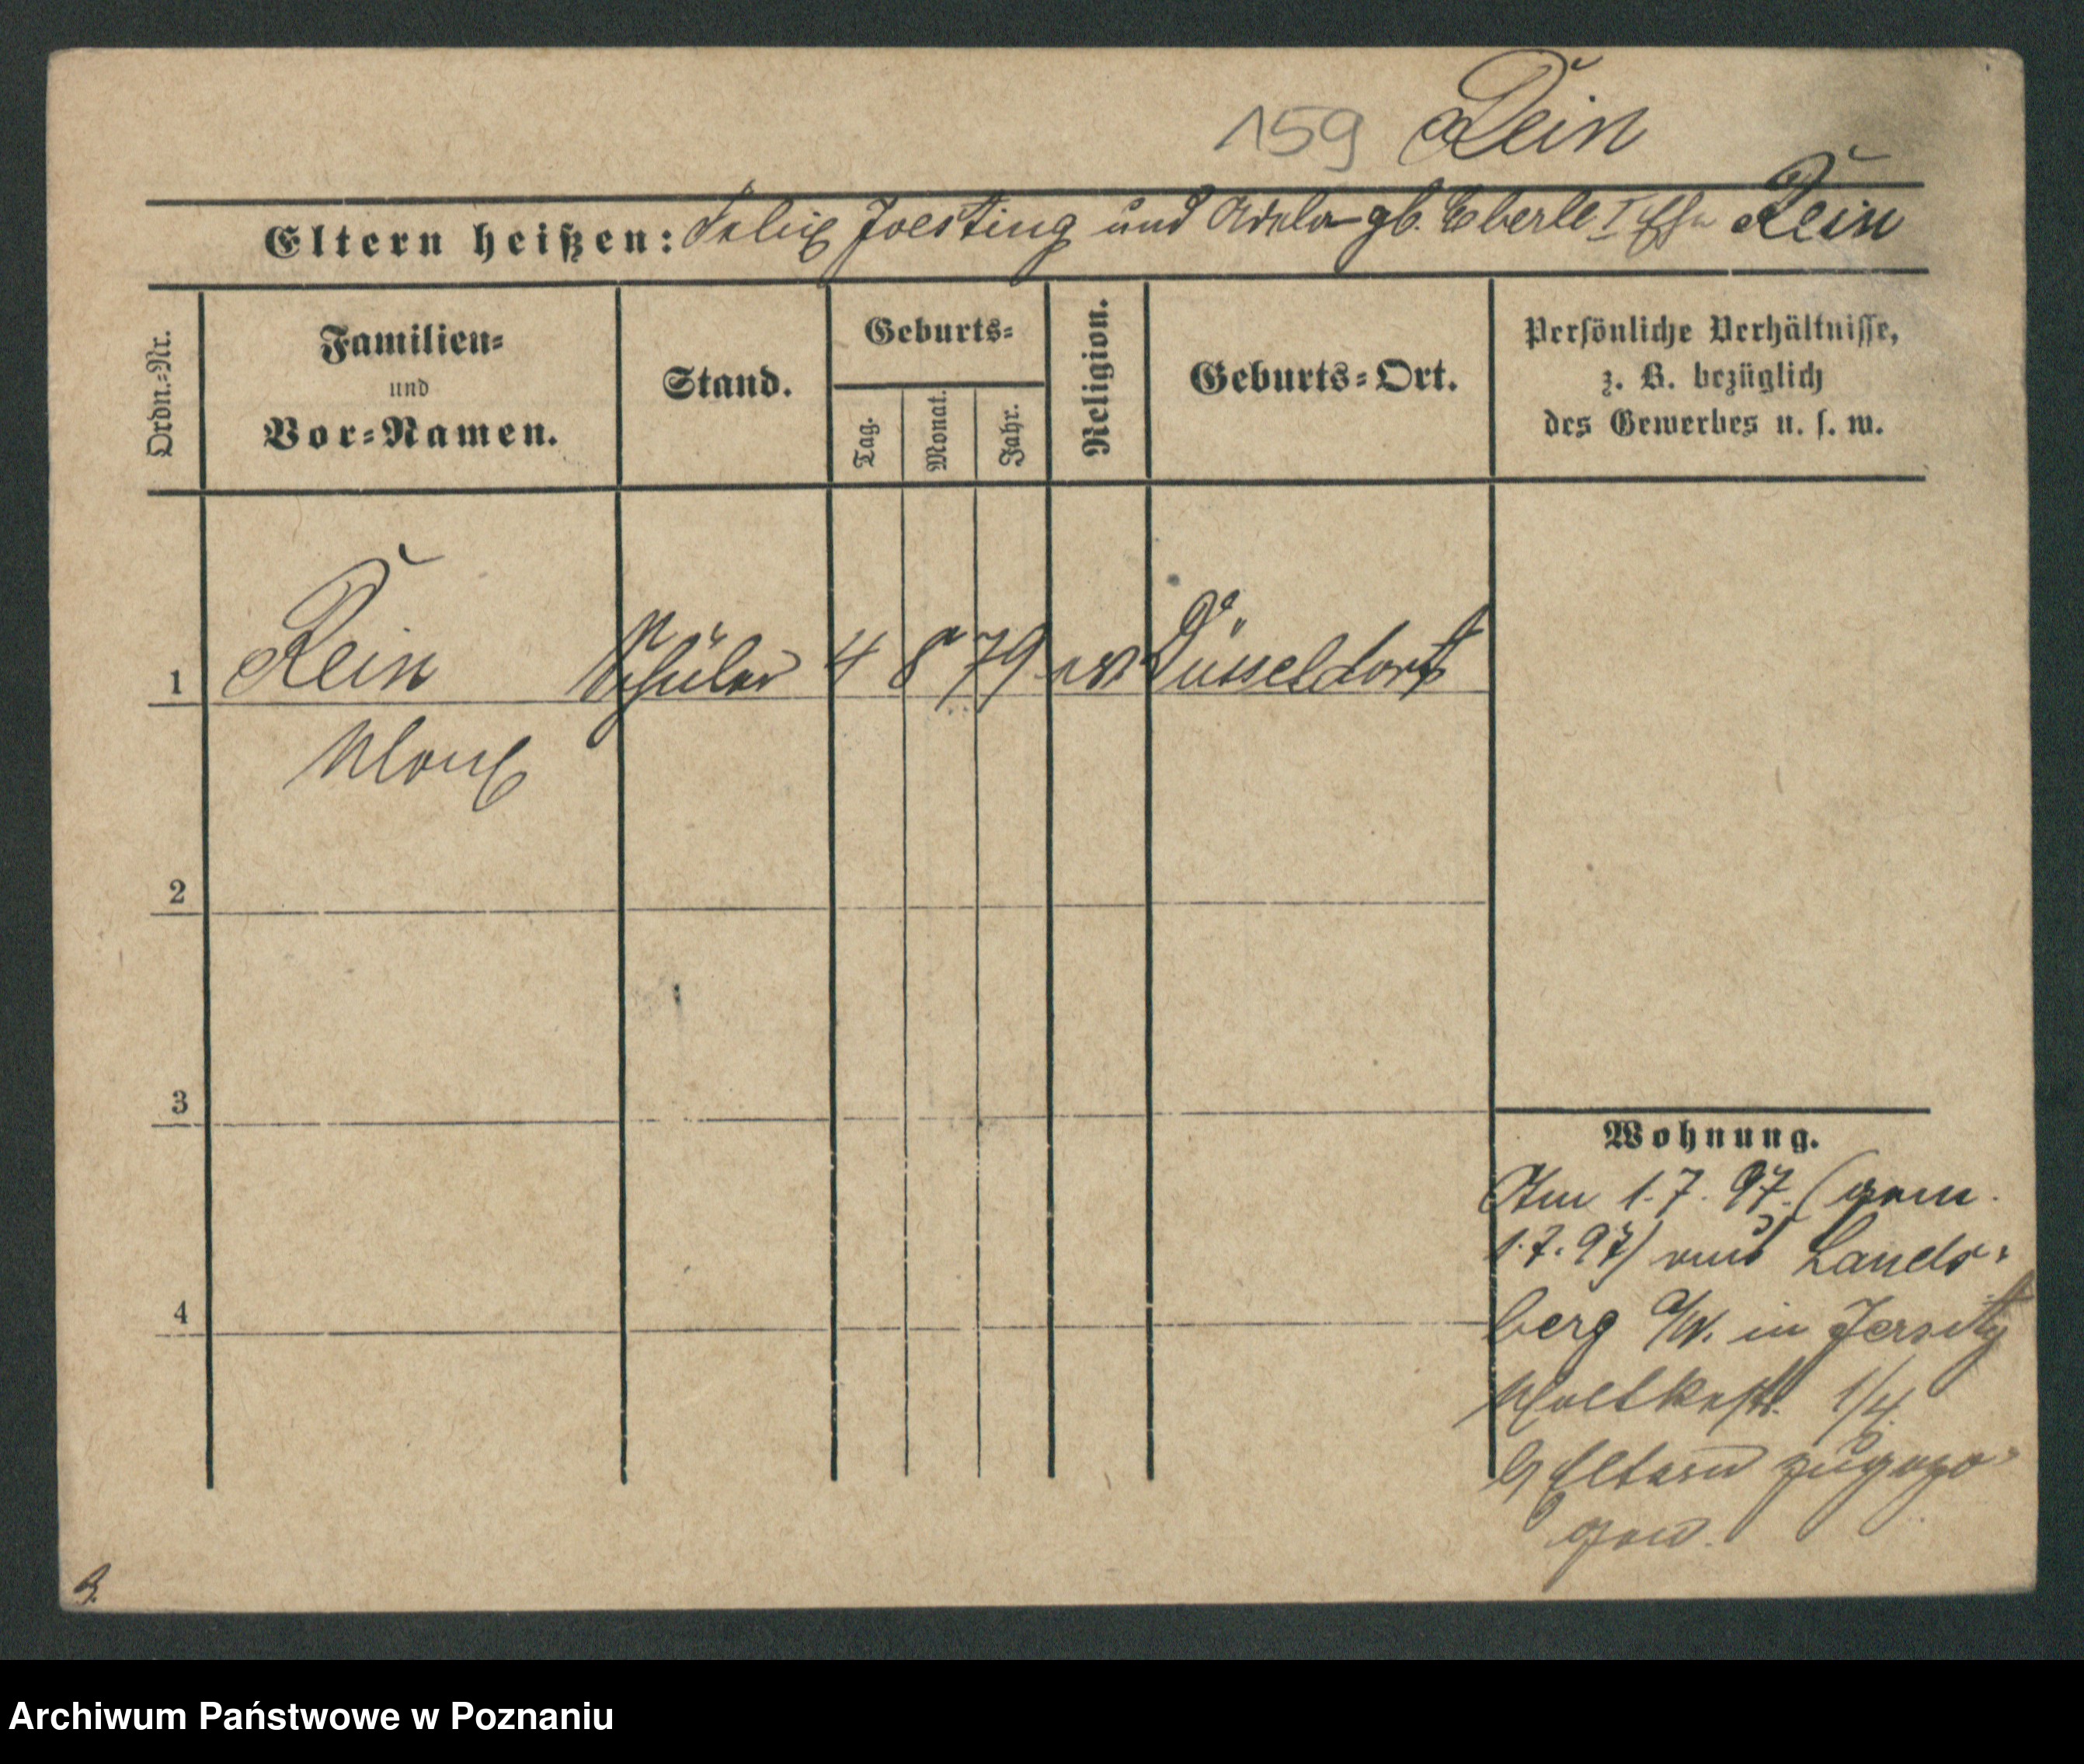 159 Rein
Eltern heißen: Felix Joesting und Adela gb. Eberle I Ehe Rein
Ordn.-Nr.
Familien-
und
Vor-Namen.
Stand.
Geburts-
Tag.
Monat.
Jahr.
Religion.
Geburts-Ort.
Persönliche Verhältnisse,
z. B. bezüglich
des Gewerbes u. s. w.
1 Rein Schüler 4 8 79 ev. Düsseldorf
Max
2
3
4
Wohnung.
Am 1.7.97. (gem.
1.7.97) aus Lands-
berg a/W. in Jersitz
Moltkestr. 1/4.
b/ Eltern zugezo-
gen.
B.
Archiwum Państwowe w Poznaniu